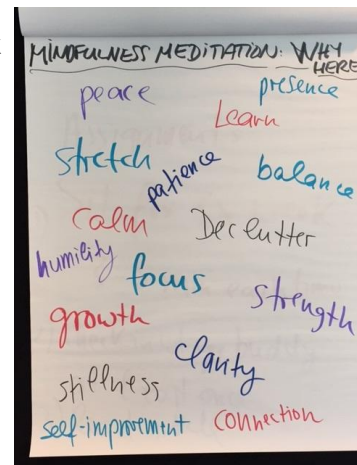 MINDFULNESS MEDITATION: WHY
HERE
peace
presence
Learn
stretch
patience
balance
calm
Declutter
humility
focus
strength
growth
clarity
stillness
self-improvement
connection